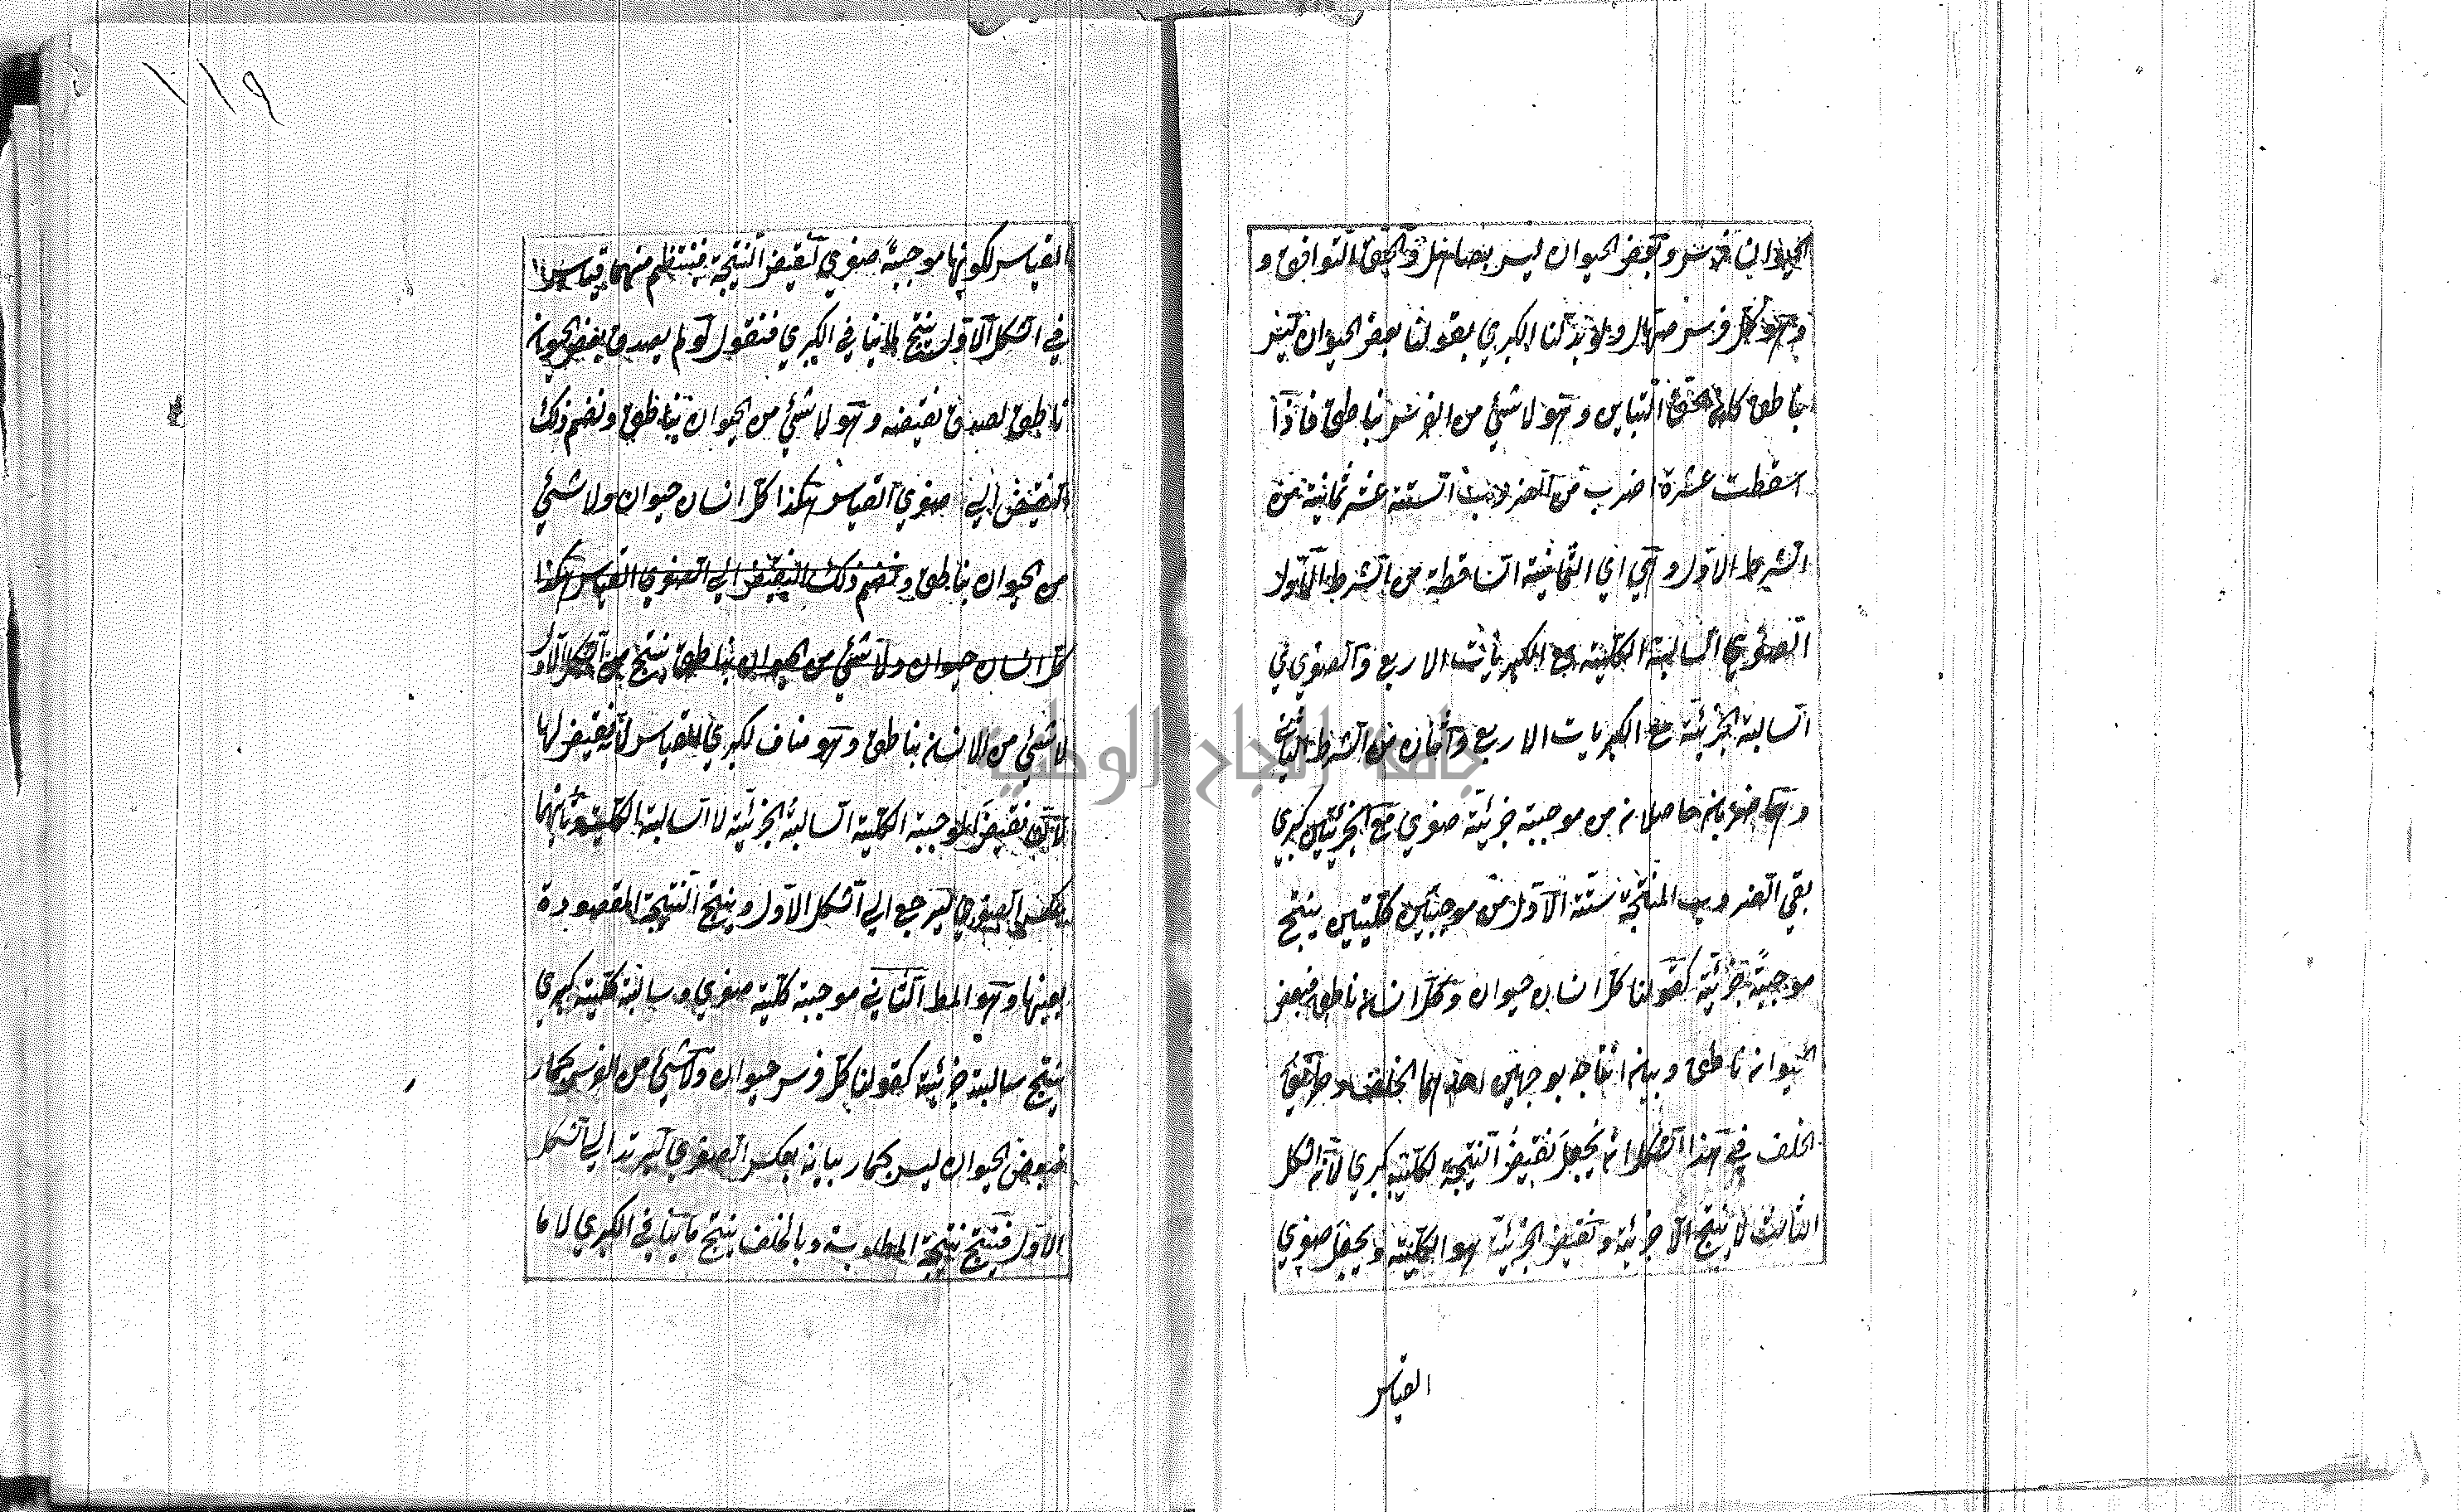 الحيوان فرس وبعض الحيوان ليس بصاهل والحق التوافق و
وهو كل فرس صهال ولو بدلنا الكبري بقولنا بعض الحيوان ليس
بناطق كان الحق التباين وهو لا شئ من الفرس بناطق فاذا
اسقطت عشرة اضرب من الضروب الستة عشر ثمانية من
الشرط الاول وهي اي الثمانية الساقطة من الشرط الاول
الصغري السالبة الكلية مع الكبريات الاربع والصغري في
السالبة الجزئية مع الكبريات الاربع واثنان من الشرط الثاني
وهما ضربان حاصلان من موجبة جزئية صغري مع الجزئيتين كبري
بقي الضروب المنتجة ستة الاول من موجبتين كليتين ينتج
موجبةً جزئية كقولنا كل انسان حيوان وكل انسان ناطق فبعض
الحيوان ناطق وبيان انتاجه بوجهين احدهما الخلف وطريق
الخلف في هذا الشكل ان يجعل نقيض النتيجة لكليته كبري لان الشكل
الثالث لا ينتج الا جزئية ونقيض الجزئية هو الكلية ويجعل صغري
القياس
١١٩
القياس لكونها موجبةً صغري لنقيض النتيجة فينتظم منهما قياس
في الشكل الاول ينتج لما ينافي الكبري فنقول لو لم يصدق بعض الحيوان
ناطق لصدق نقيضه وهو لا شئ من الحيوان بناطق ونضم ذلك
النقيض الي صغري القياس هكذا كل انسان حيوان ولا شئ
من الحيوان بناطق ونضم ذلك النقيض الي الصغري القياس هكذا
كل انسان حيوان ولا شئ من الحيوان بناطق ينتج من الشكل الاول
لا شئ من الانسان بناطق وهو مناف لكبري القياس لا نقيض لها
لان نقيض الموجبة الكلية السالبة الجزئية لا السالبة الكلية وثانيهما
بعكس الصغري ليرجع الي الشكل الاول وينتج النتيجة المقصودة
بعينها وهو المط الثاني موجبة كلية صغري وسالبة كلية كبري
ينتج سالبة جزئية كقولنا كل فرس حيوان ولا شئ من الفرس بحمار
فبعض الحيوان ليس بحمار بيانه بعكس الصغري ليرتد الي الشكل
الاول فينتج نتيجة المطلوبة وبالخلف ينتج ما ينافي الكبري لا ما
جامعة النجاح الوطنية